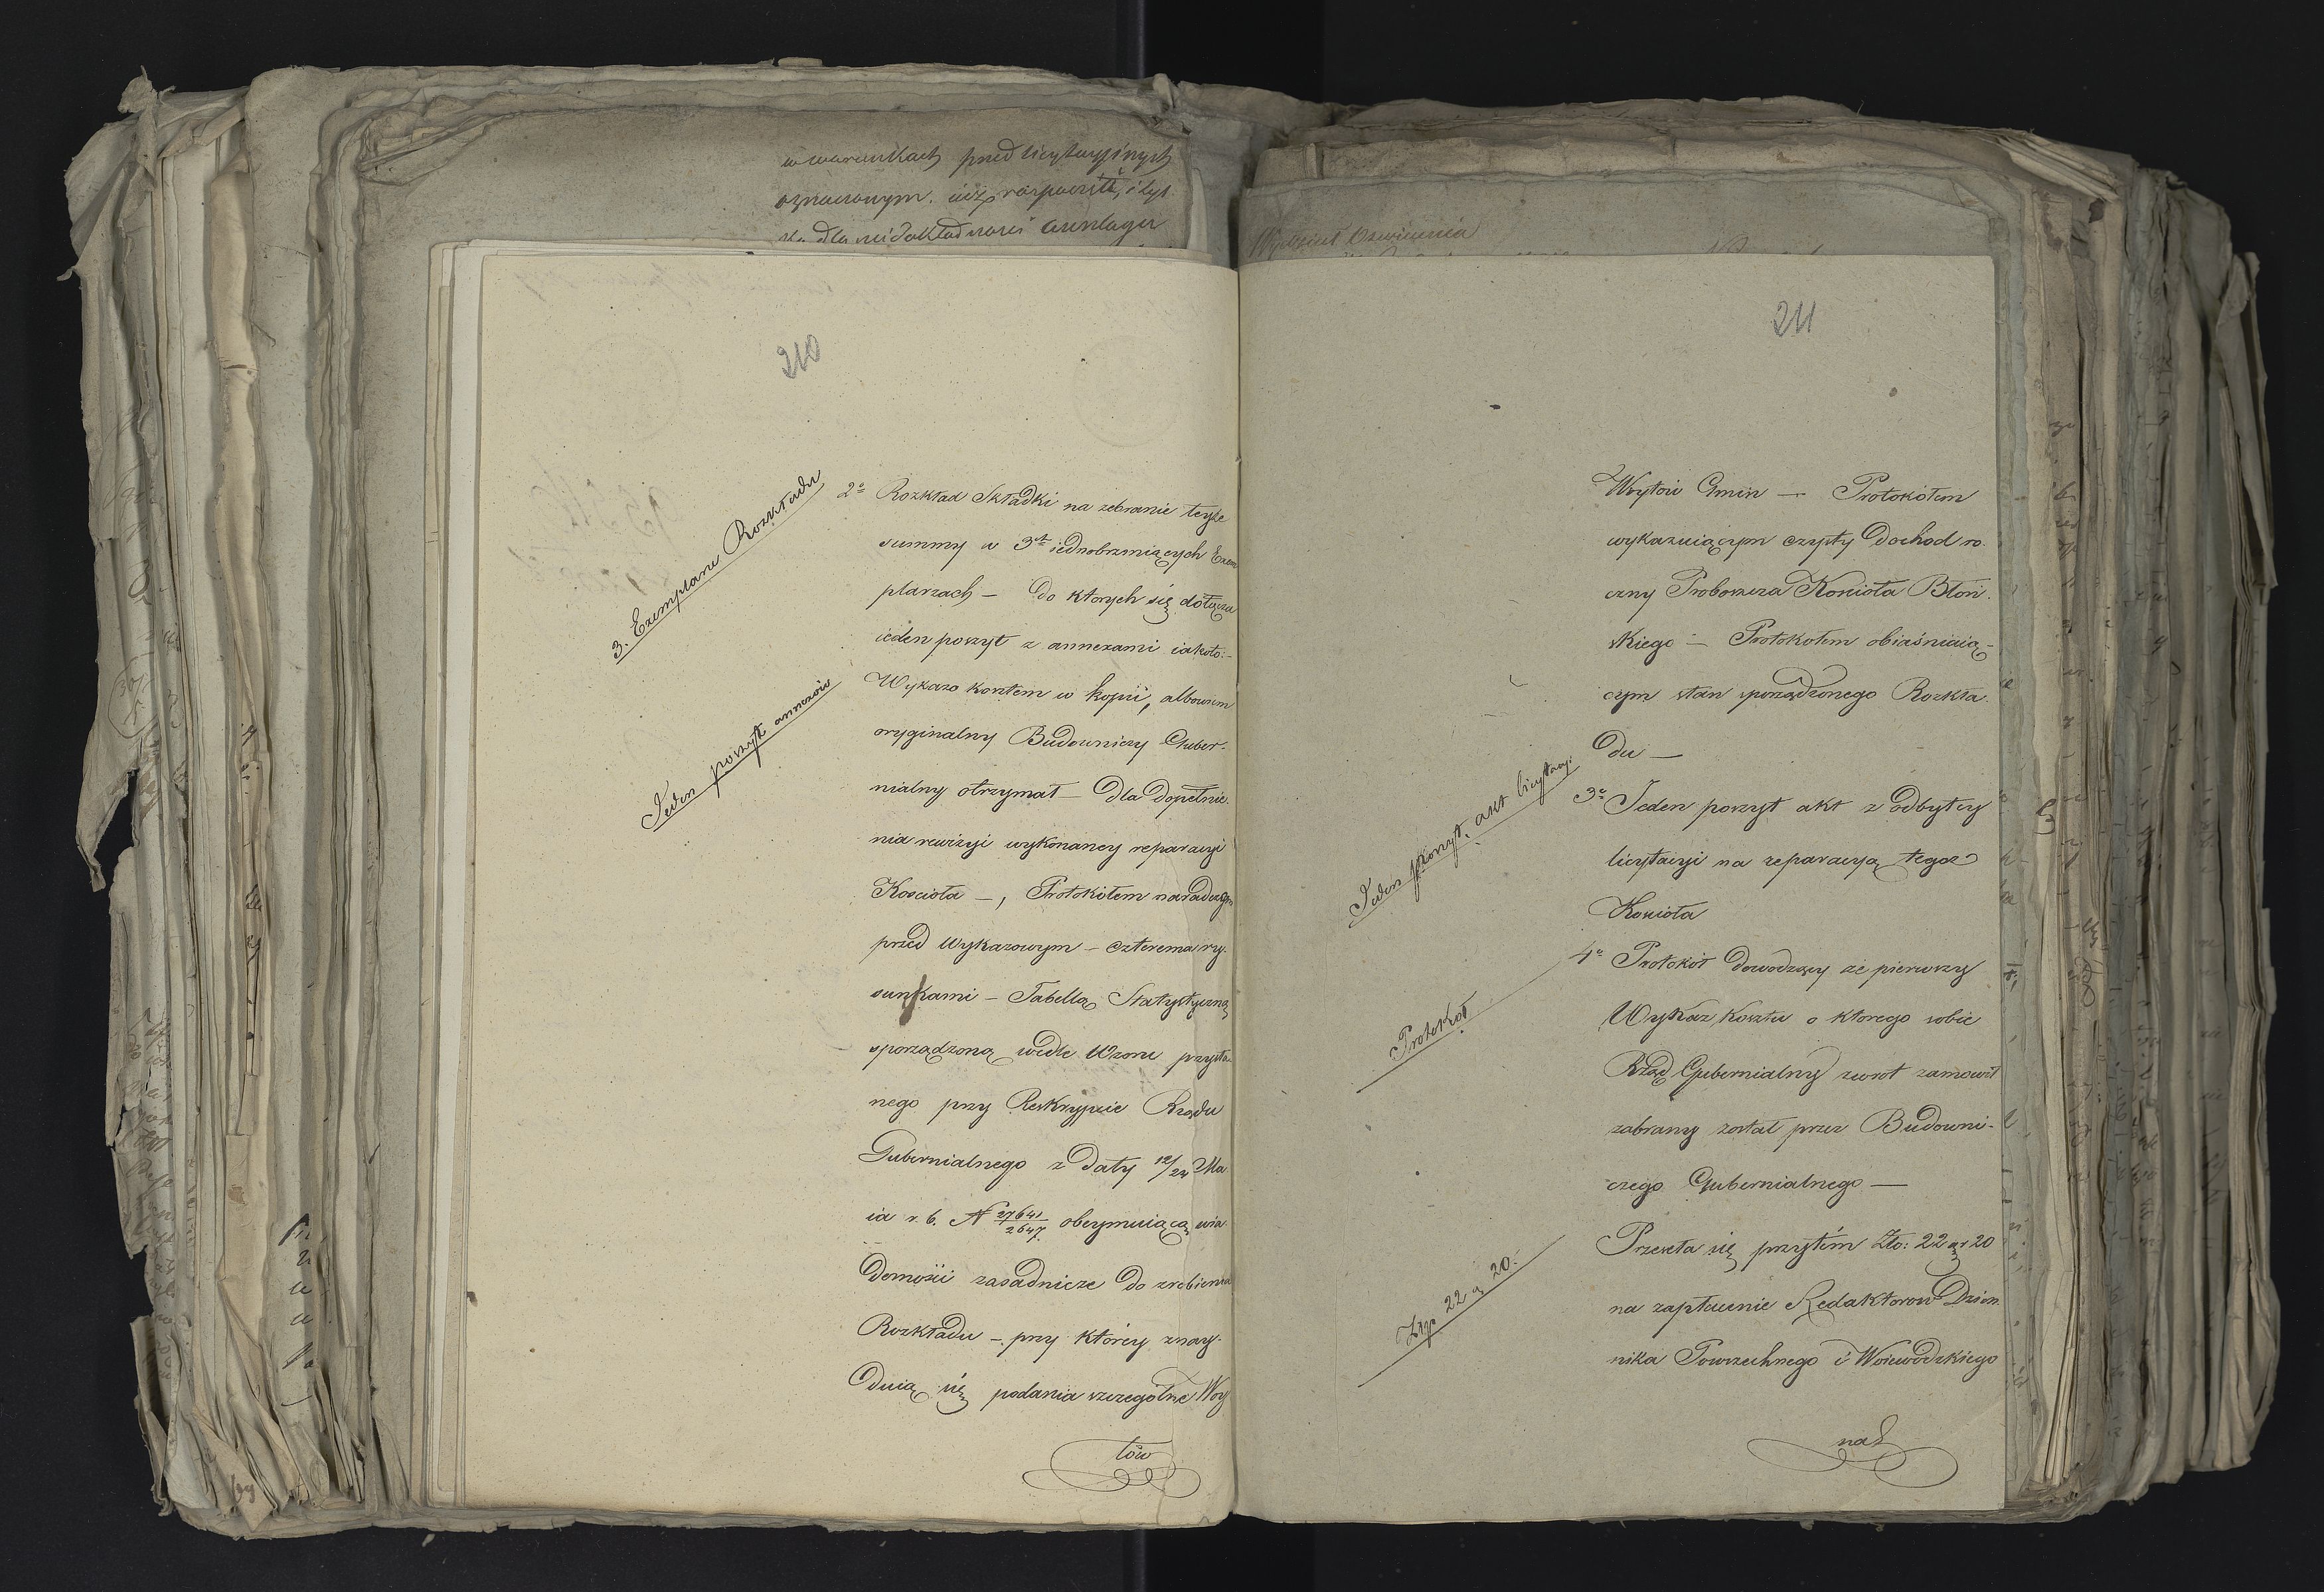 w warunkach przed licytacyjnych
oznaczonym.
Wydział Oświecenia
210
3. Exemplarze Rozkładu
Jeden poszyt annexów
2o Rozkład Składki na zebranie teyże
summy w 3ch iednobrzmiących Exem
plarzach – do ktorych się dołącza
ieden poszyt z annexami iakoto: –
Wykazo kosztem w kopii, albowiem
oryginalny Budowniczy Guber-
nialny otrzymał – dla dopełnie-
nia rewizyi wykonaney reparacyi
Kościoła –, Protokółem naradczym
przed Wykazowym – czterema ry-
sunkami – Tabellą Statystyczną
sporządzoną wedle Wzoru przysła-
nego przy Reskrypcie Rządu
Gubernialnego z daty 12/24 Ma
ia r. b. N 27641/2647 obeymuiącą wia
domości zasadnicze do zrobienia
Rozkładu – przy którey znay-
duią się podania szczególne Woy
tów
211
Woytow Gmin — Protokółem
wykazuiącym czysty dochod ro-
czny Proboszcza Kościoła Błoń-
skiego – Protokołem obiaśniaią-
cym stan sporządzonego Rozkła-
du —
Jeden poszyt. akt licytacyi
3o Jeden poszyt akt z odbytey
licytacyi na reparacyą tegoż
Kościoła
Protokół
4o Protokół dowodzący że pierwszy
Wykaz kosztu o ktorego sobie
Rząd Gubernialny zwrot zamowił
zabrany został przez Budowni-
czego Gubernialnego —
Złp. 22 g 20.
Przeseła się przytém Zło: 22 gr 20
na zapłacenie Redaktorow Dzien-
nika Powszechnego i Woiewodzkiego